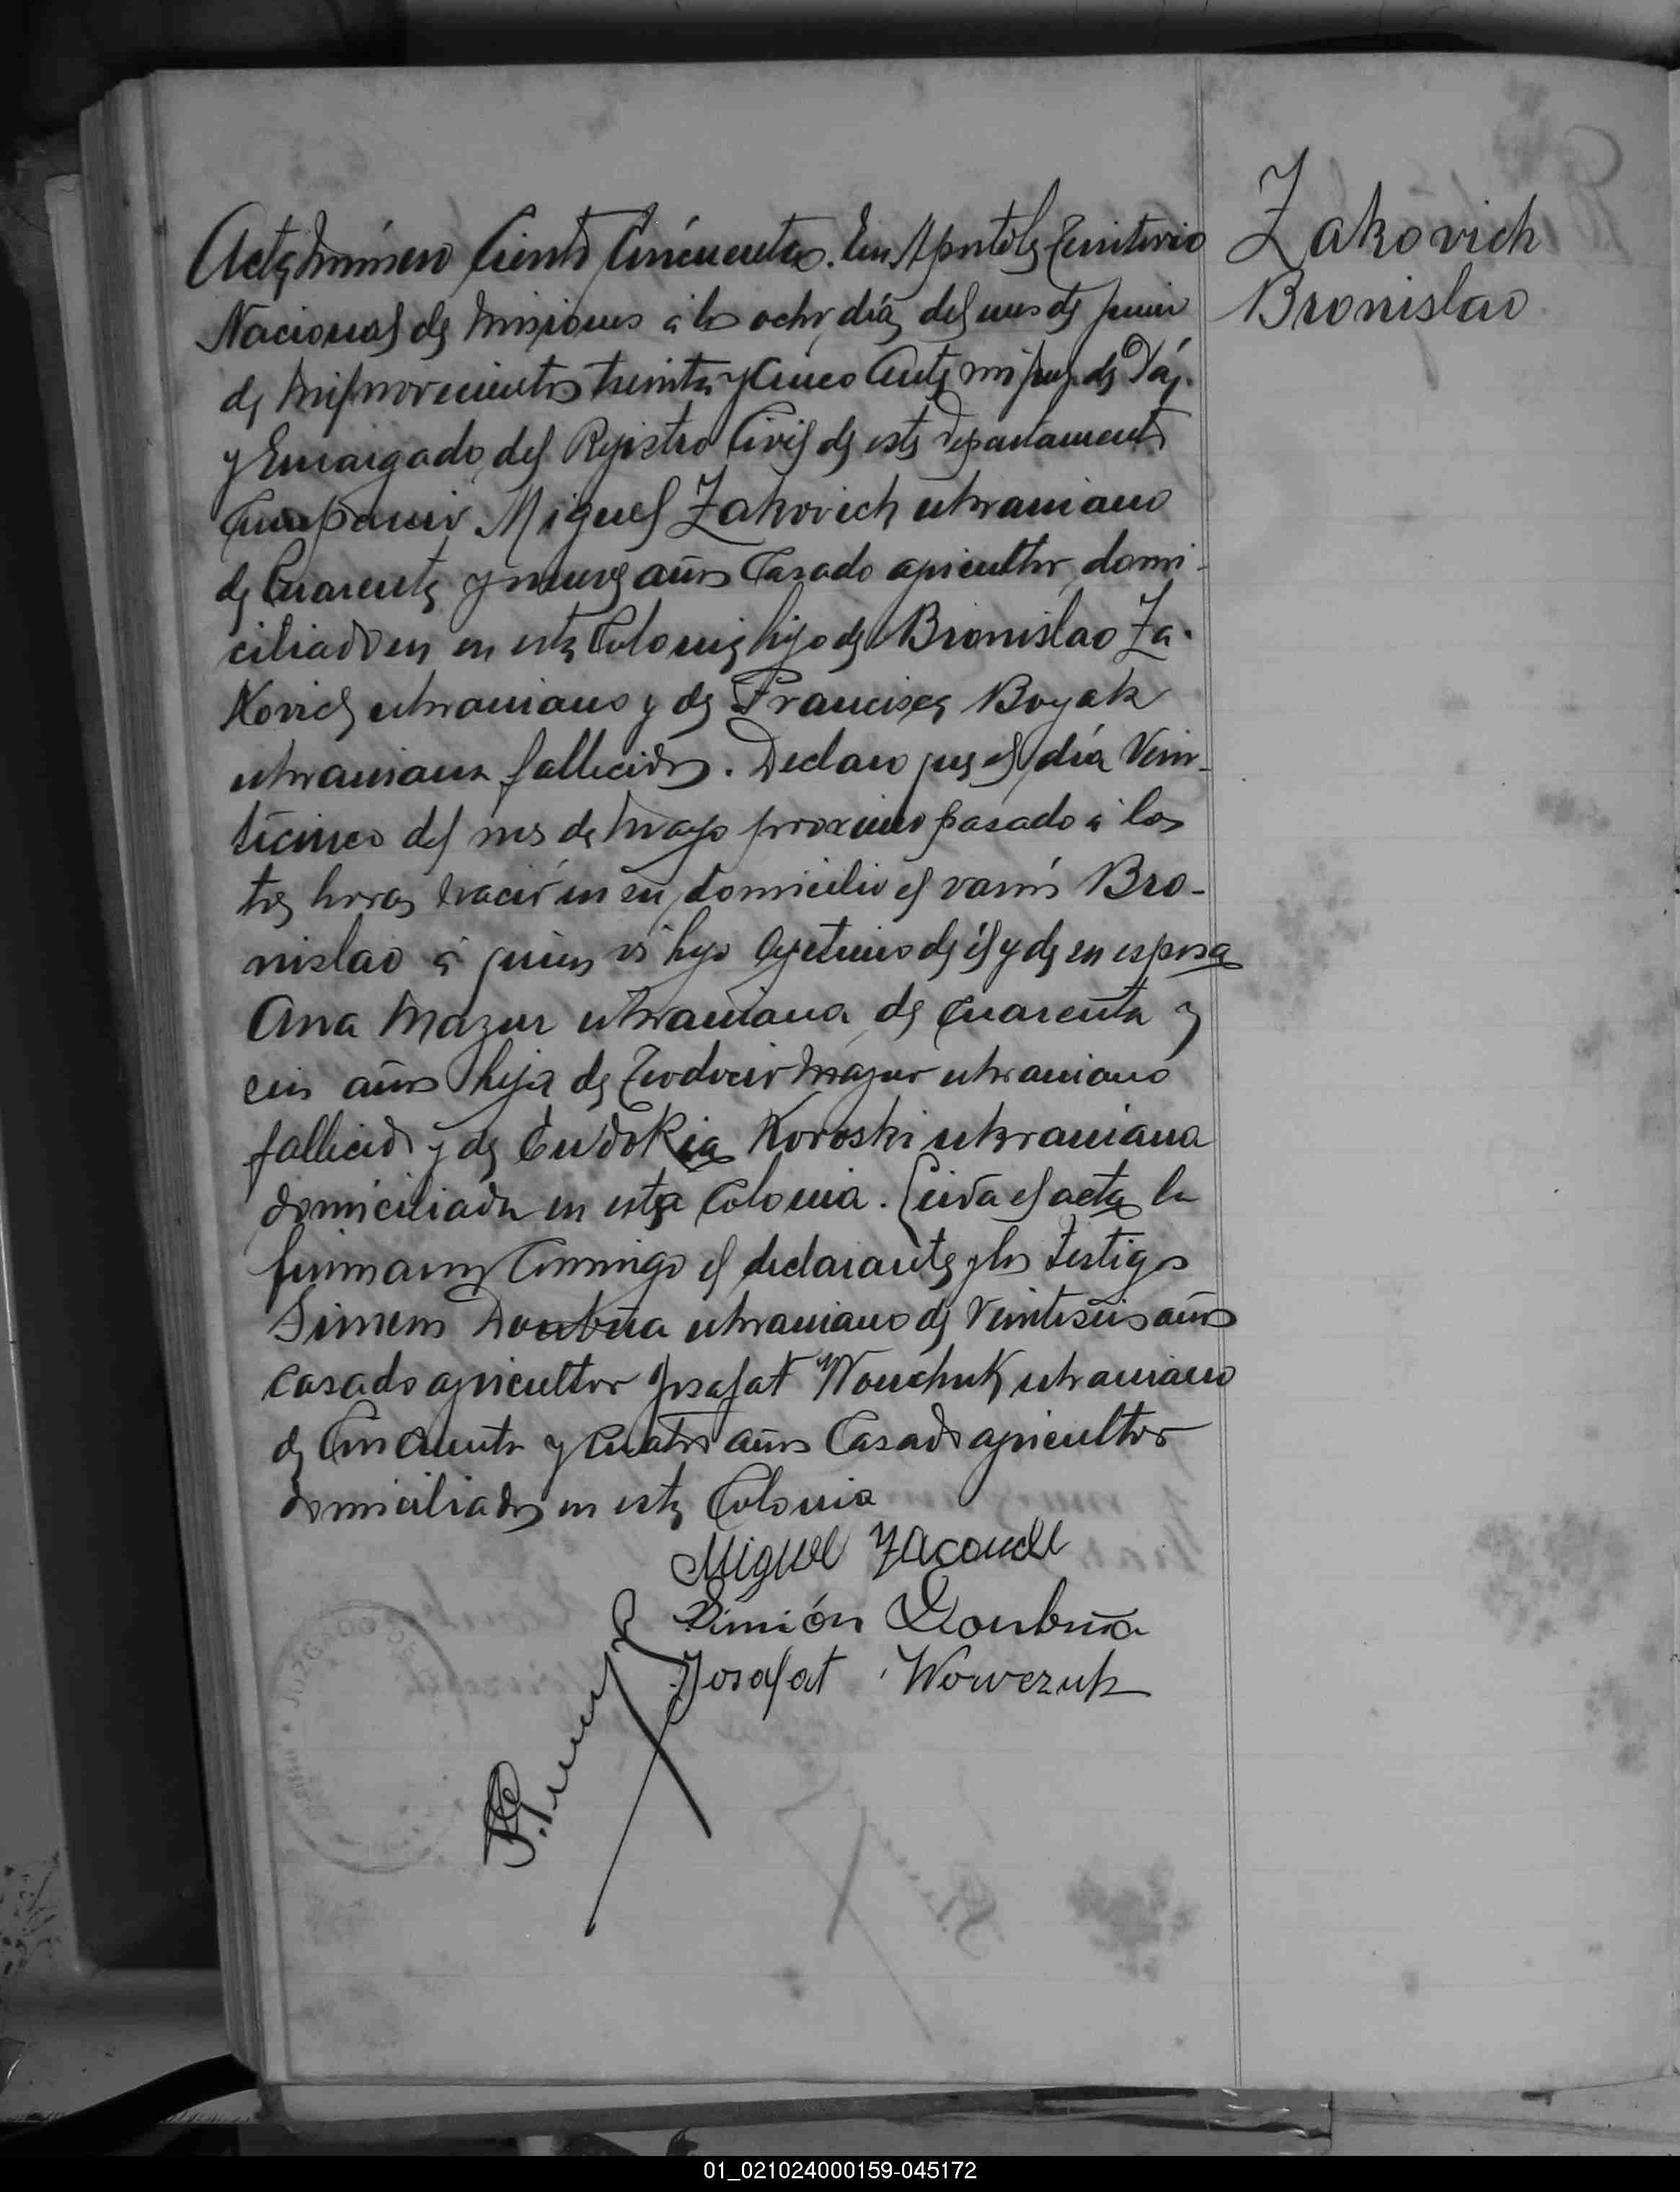 Zakovich
Bronislao
Acta número Ciento Cincuenta. En Apostoles Territorio
Nacional de Misiones á los ocho días del mes de Junio
de mil novecientos treinta y cinco Ante mi Juez de Páz
y Encargado del Registro Civil de este Departamento
Compareció Miguel Zakovich ukraniano
de Cuarenta y nueve años Casado agricultor domi-
ciliado en en esta Colonia hijo de Bronislao Za-
kovich ukraniano y de Francisca Boyak
ukraniana fallecidos. Declaro que el día Vein-
ticinco del mes de Mayo proximo pasado á las
tres horas nació en su domicilio el varón Bro-
nislao á quien es hijo legitimo de él y de su esposa
Ana Mazur ukraniana de cuarenta y
seis años hija de Teodocio Mazur ukraniano
fallecido y de Eudokia Koroski ukraniana
domiciliada en esta Colonia. Leida el acta la
firmaron Conmigo el declarante y los Testigos
Simeon ukraniano de Veintiseis años
Casado agricultor Josafat Wouchuk ukraniano
de Cincuenta y Cuatro años Casado agricultor
domiciliados en esta Colonia
Miguel
Simión Doubnia
Josafat Wowczuk
JUZGADO DE
01_021024000159-045172